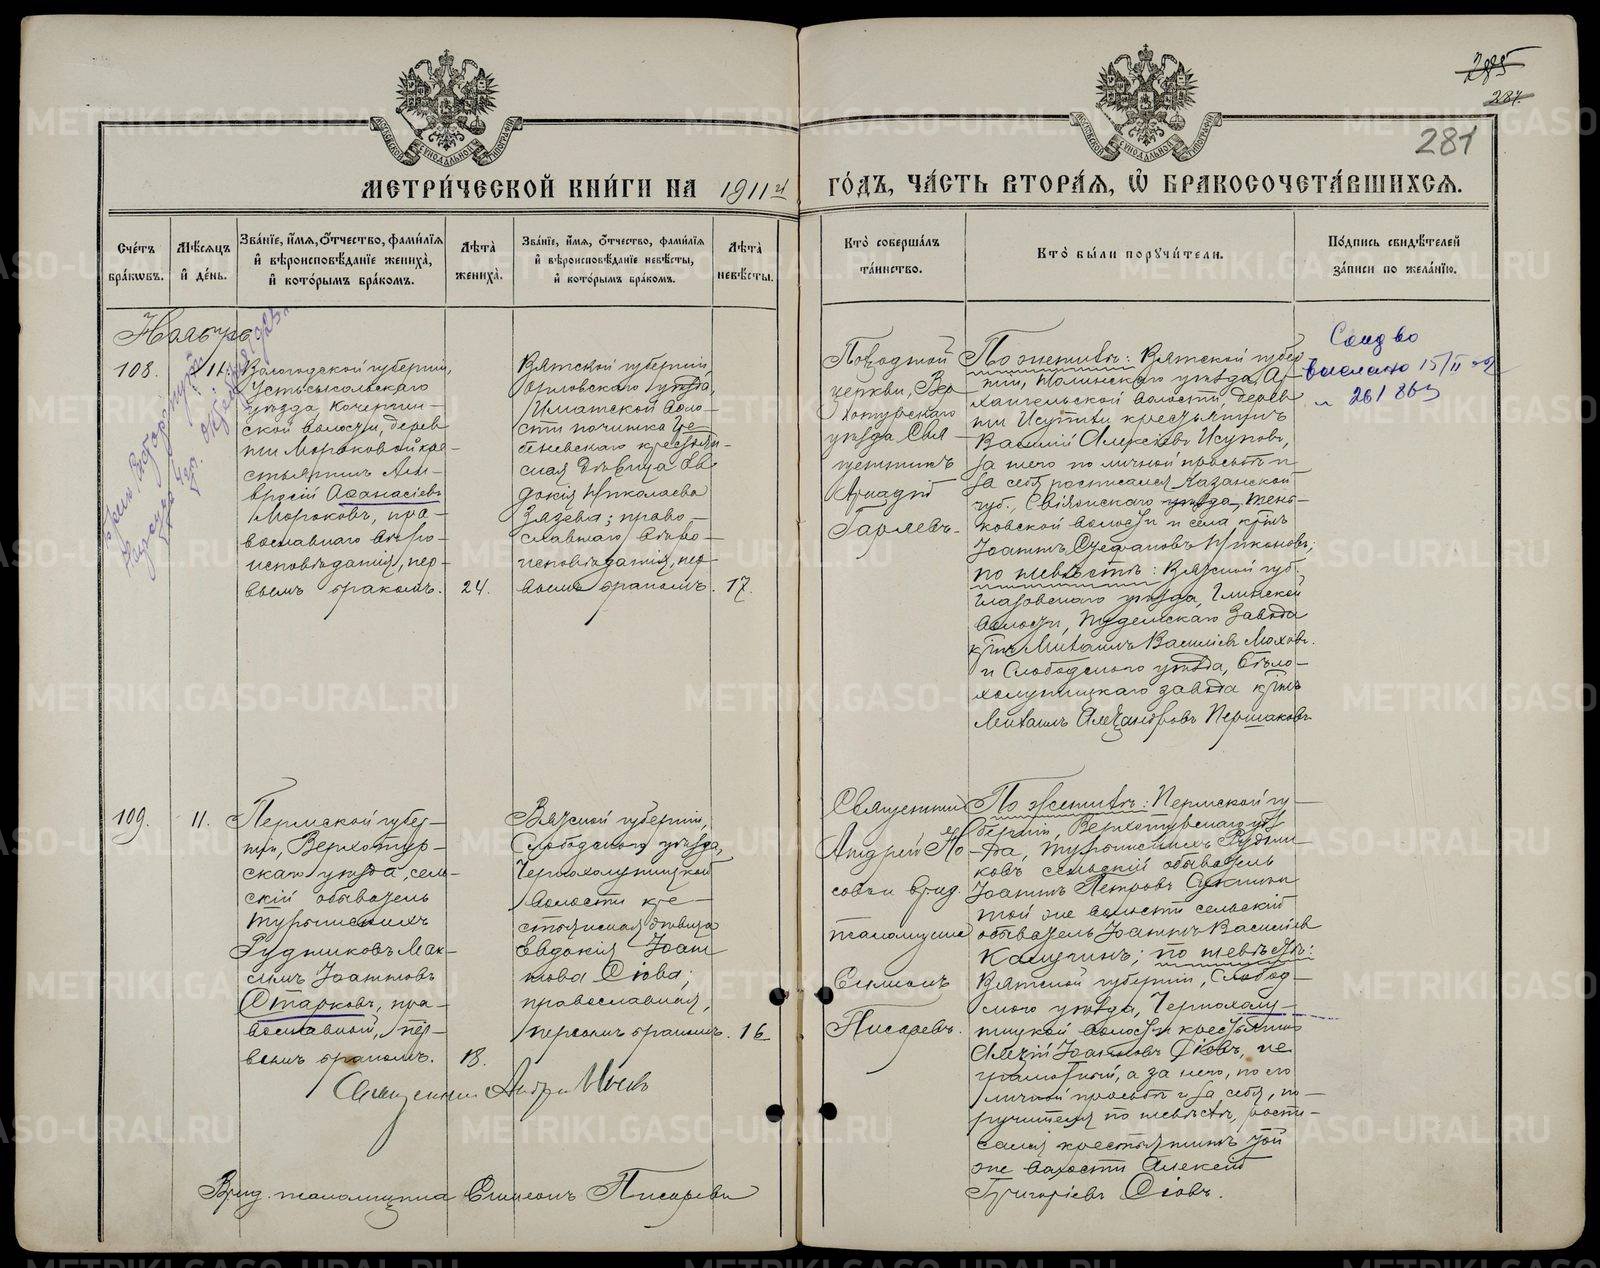 285
287.
281
МЕТРИ́ЧЕСКОЙ КНИ́ГИ НА 1911 й ГО́ДЪ, ЧА́СТЬ ВТОРА́Я, Ѽ БРАКОСОЧЕТА́ВШИХСЯ.
Сче́тъ бра́кѡвъ.
Мѣ́сяцъ и҆ де́нь.
Зва́нїе, и҆́мя, ѻ҆́тчество, фами́лїя и҆ вѣроисповѣ́данїе жениха̀, и҆ кото́рымъ бра́комъ.
Лѣ́та̀ жениха̀.
Зва́нїе, и҆́мя, ѻ҆́тчество, фами́лїя и҆ вѣроисповѣ́данїе невѣ́сты, и҆ кото́рымъ бра́комъ.
Лѣ́та̀ невѣ́сты.
Кто̀ соверша́лъ та́инство.
Кто̀ бы́ли порꙋчи́тели.
По́дпись свидѣ́телей за́писи по жела́нїю.
Ноябрь
108.
11.
Вологодской губерніи,
Устьсысольскаго
уѣзда, Кочергин-
ской волости, дерев-
ни Мороковой кре-
стьянинъ Ам-
вросій Аѳанасіевъ
Мороковъ, пра-
вославнаго вѣро-
исповѣданія, пер-
вымъ бракомъ.
24.
Вятской губерніи,
Орловскаго уѣзда,
Илгатской воло-
сти починка
крестьян-
ская дѣвица Ев-
докія Николаева
Зязева; право-
славнаго вѣро-
исповѣданія, пер-
вымъ бракомъ.
17.
Походной
церкви, Вер-
хотурскаго
уѣзда Свя-
щенникъ
Аркадій
Гаряевъ.
По женихѣ: Вятской губер-
ніи, Нолинскаго уѣзда, Ар-
хангельской волости, дерев-
ни Исупи крестьянинъ
Василій Алексѣевъ Исуповъ,
за него по личной просьбѣ и
за себя росписался Казанской
губ., Свіяжскаго уѣзда, Тень-
ковской волости и села кр-нъ
Іоаннъ Стефановъ Никоновъ;
по невѣстѣ: Вятской губ.
Глазовскаго уѣзда, Глинской
волости, Пудемскаго завода
кр-нъ Михаилъ Василіевъ Моховъ.
и Слободского уѣзда, Бѣло-
холуницкаго завода кр-нъ
Михаилъ Александровъ Першаковъ
Свид-во
выслано 15/II
261 863
109.
11.
Пермской губер-
ніи, Верхотур-
скаго уѣзда, сель-
скій обыватель
Турьинскихъ
Рудниковъ Мак-
симъ Іоанновъ
Старковъ, пра-
вославной, пер-
вымъ бракомъ.
18.
Вятской губерніи,
Слободского уѣзда,
Чернохолуницкой
волости кре-
стьянская дѣвица
Евдокія Іоан-
нова Сіова;
православная,
первымъ бракомъ.
16
Священникъ
Андрей Но-
совъ и врид.
псаломщика
Симеонъ
Писаревъ.
По женихѣ: Пермской гу-
берніи, Верхотурскаго уѣз-
да, Турьинскихъ Рудни-
ковъ сельскій обыватель
Іоаннъ Петровъ Сукманъ
той же волости сельскій
обыватель Іоаннъ Василіевъ
Калугинъ; по невѣстѣ:
Вятской губерніи, Слобод-
ского уѣзда, Чернохолу-
ницкой волости крестьянинъ
Алексій Іоанновъ Сіовъ, не
грамотный, а за него, по его
личной просьбѣ и за себя, по-
ручителя по невѣстѣ, роспи-
сался крестьянинъ той
же волости Алексій
Григоріевъ Сіовъ.
Священникъ Андрей Носовъ
Врид. псаломщика Симеонъ Писаревъ